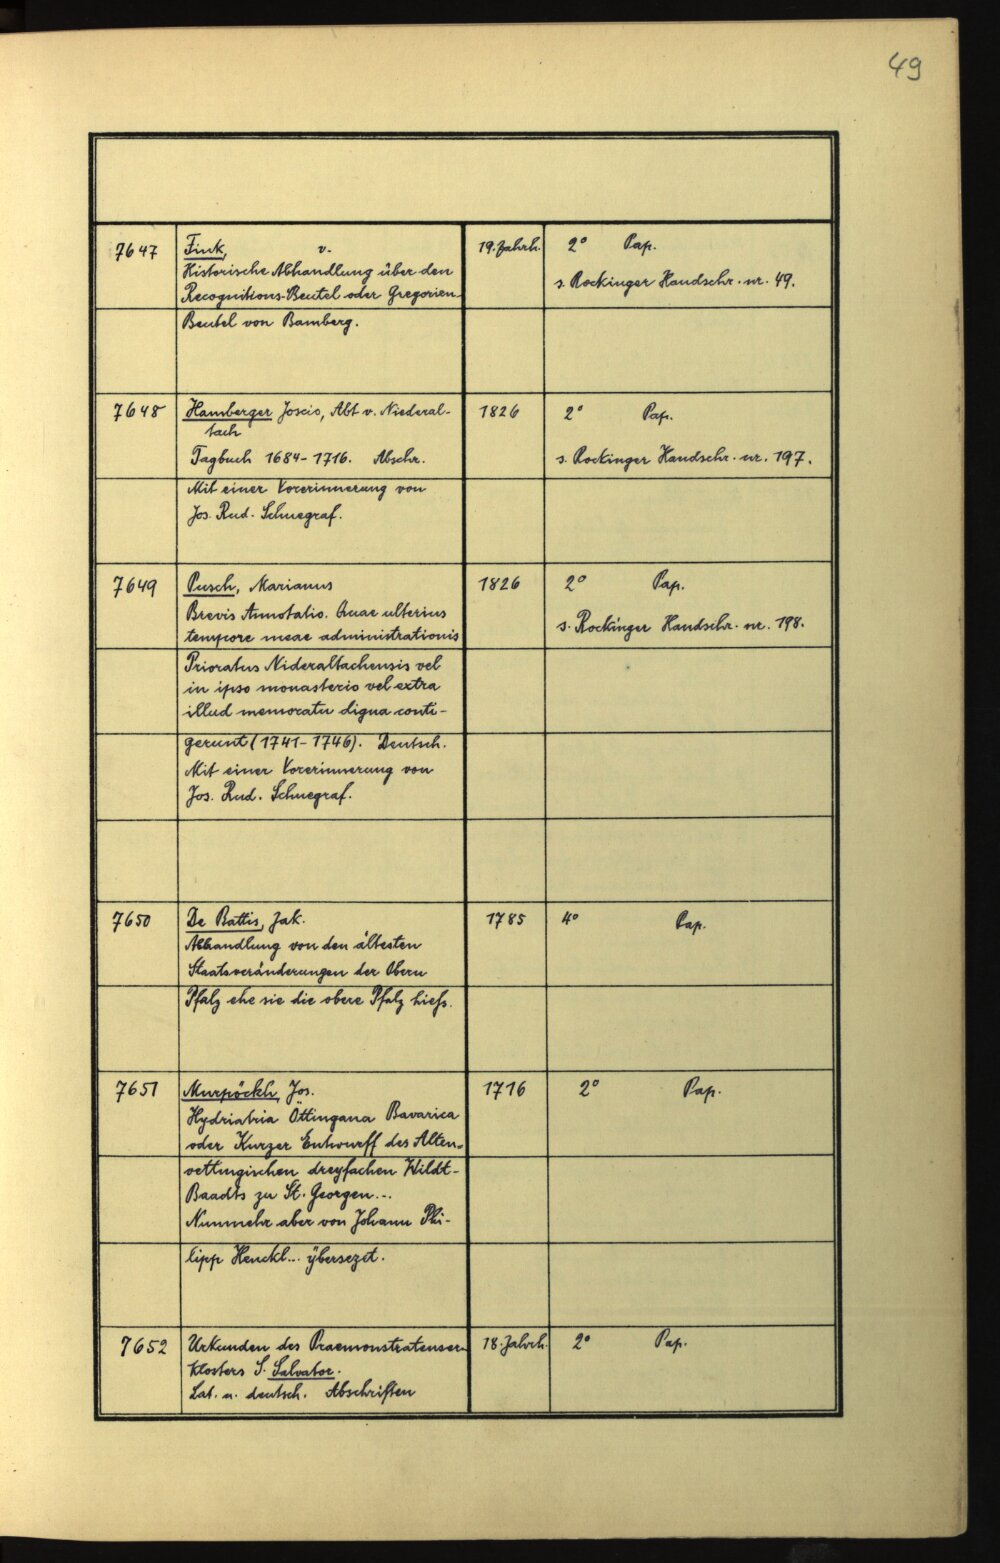 49
7647 Fink, v. 19. Jahrh. 2° Pap.
Historische Abhandlung über den
Recognitions-Beutel oder Gregorien- s. Rockinger Handschr. nr. 49.
Beutel von Bamberg.
7648 Hamberger Joscio, Abt v. Niederal- 1826 2° Pap.
tach
Tagbuch 1684-1716. Abschr. s. Rockinger Handschr. nr. 197.
Mit einer Vorerinnerung von
Jos. Rud. Schuegraf.
7649 Pusch, Marianus 1826 2° Pap.
Brevis Annotatio. Quae ulterius
tempore meae administrationis s. Rockinger Handschr. nr. 198.
Prioratus Nideraltachensis vel
in ipso monasterio vel extra
illud memoratu digna conti-
gerunt (1741-1746). Deutsch.
Mit einer Vorerinnerung von
Jos. Rud. Schuegraf.
7650 De Battis, Jak. 1785 4° Pap.
Abhandlung von den ältesten
Staatsveränderungen der Obern
Pfalz ehe sie die obere Pfalz hiess.
7651 Murpöckh, Jos. 1716 2° Pap.
Hydriatria Öttingana Bavarica
oder Kurzer Entwurff des Alten-
oettingischen dreyfachen Wildt-
Baadts zu St. Georgen...
Nunmehr aber von Johann Phi-
lipp Henckl... ÿbersezet.
7652 Urkunden des Praemonstratenser- 18. Jahrh. 2° Pap.
klosters S. Salvator.
Lat. u. deutsch. Abschriften